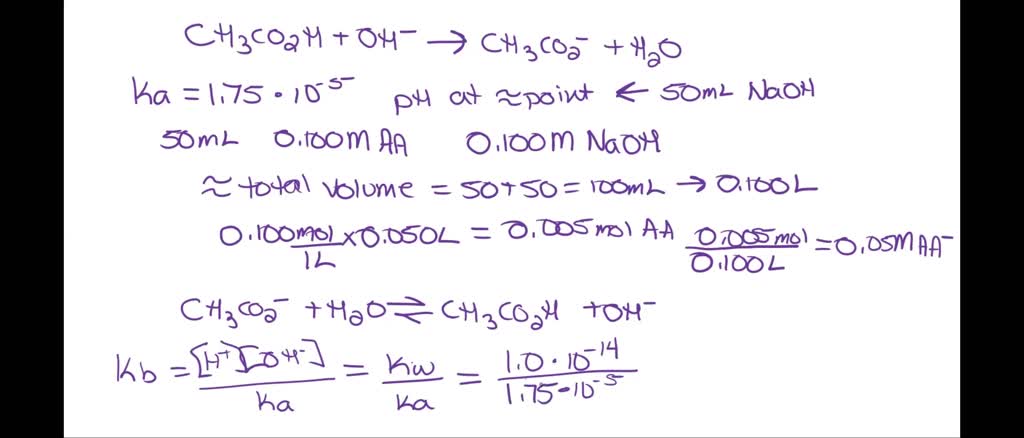 CH₃CO₂H + OH⁻ → CH₃CO₂⁻ + H₂O
Ka = 1.75 · 10⁻⁵ pH at ≈ point ← 50mL NaOH
50mL 0.100M AA 0.100M NaOH
≈ total volume = 50 + 50 = 100mL → 0.100L
0.100mol/1L × 0.050L = 0.005 mol AA 0.005mol/0.100L = 0.05M AA⁻
CH₃CO₂⁻ + H₂O ⇌ CH₃CO₂H + OH⁻
Kb = [H⁺][OH⁻]/Ka = Kw/Ka = 1.0 · 10⁻¹⁴/1.75 · 10⁻⁵